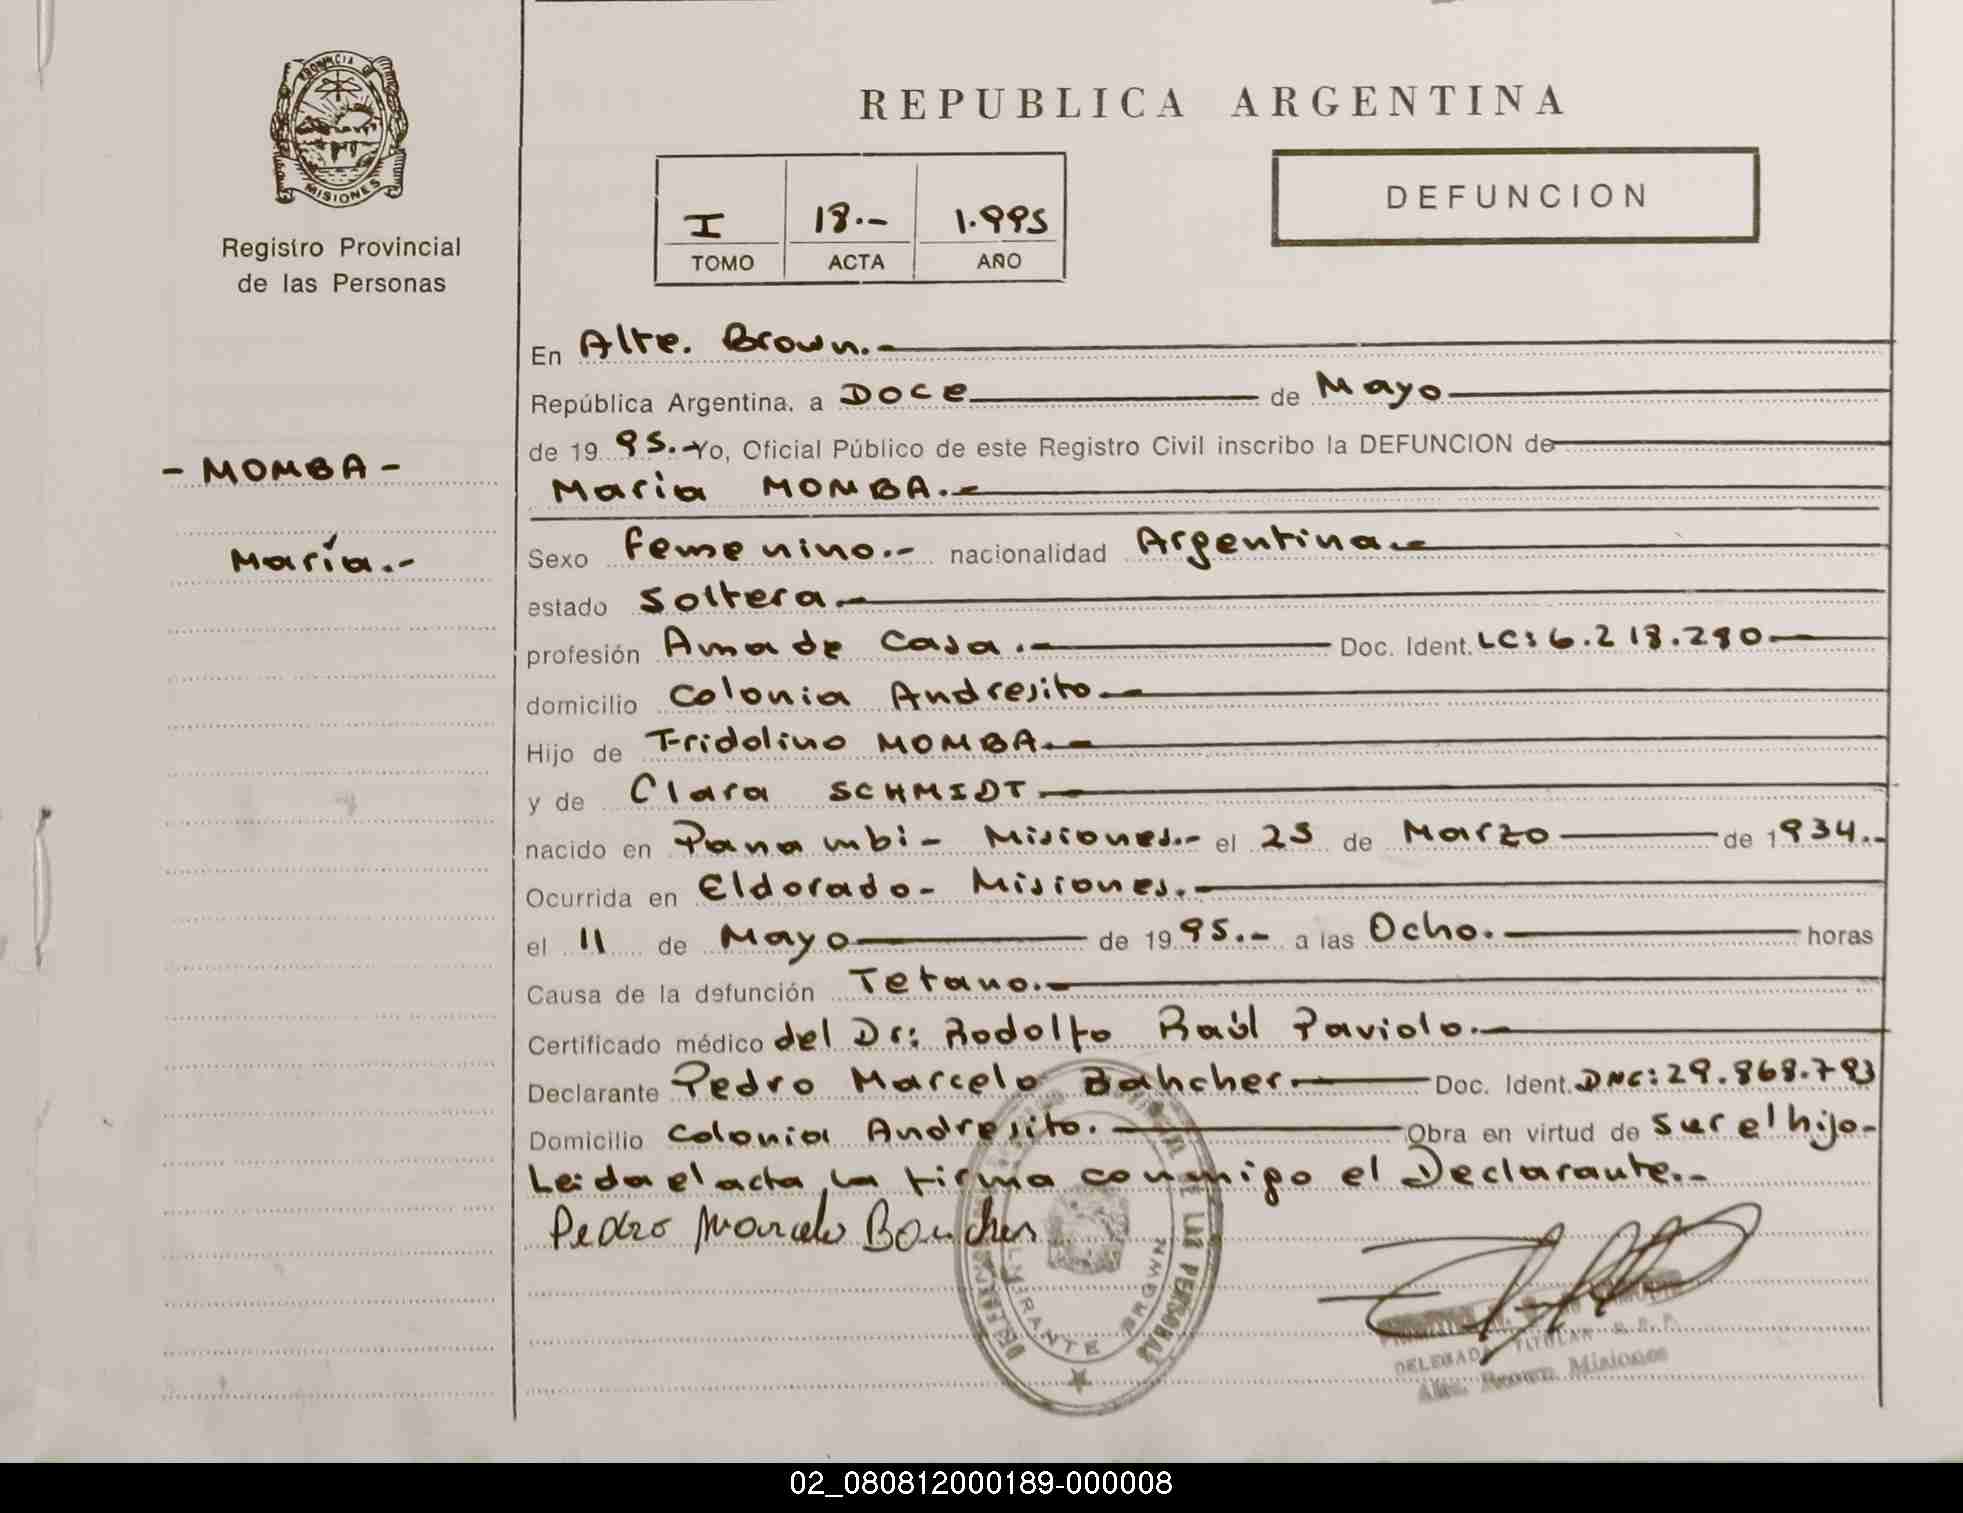 PROVINCIA DE
MISIONES
Registro Provincial
de las Personas
- MOMBA -
María.-
REPUBLICA ARGENTINA
I 18.- 1.995
TOMO ACTA AÑO
DEFUNCION
En Alte. Brown.-
República Argentina, a Doce de Mayo
de 19 95.- Yo, Oficial Público de este Registro Civil inscribo la DEFUNCION de
Maria MOMBA.-
Sexo femenino.- nacionalidad Argentina.-
estado Soltera.-
profesión Ama de Casa.- Doc. Ident. LC: 6.218.280.-
domicilio Colonia Andresito.-
Hijo de Fridolino MOMBA.-
y de Clara SCHMIDT
nacido en Panambi - Misiones.- el 25 de Marzo de 1934.-
Ocurrida en Eldorado - Misiones.-
el 11 de Mayo de 1995.- a las Ocho. horas
Causa de la defunción Tetano.-
Certificado médico del Dr: Rodolfo Raúl Paviolo.-
Declarante Pedro Marcelo Bahcher.- Doc. Ident. DNC: 29.868.793
Domicilio Colonia Andresito. Obra en virtud de sur el hijo-
Leida el acta la firma conmigo el Declarante.-
Pedro Marcelo
DE LAS PERSONAS
ALMIRANTE BROWN
DELEGADA TITULAR R.P.P.
Alte. Brown Misiones
02_080812000189-000008